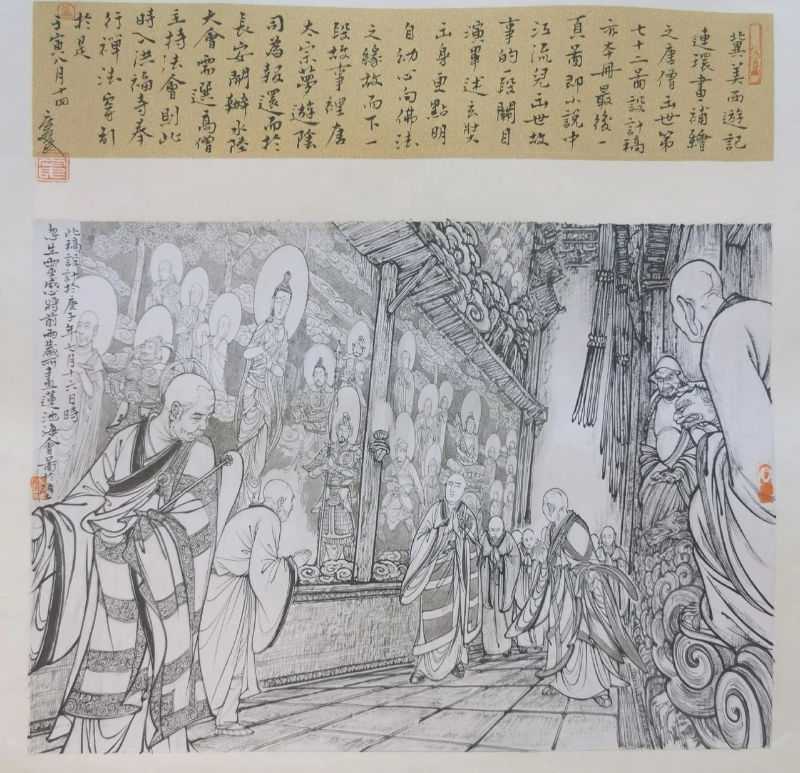 冀美西游記
連環畫補繪
之唐僧出世第
七十二啚設計稿
亦本冊最後一
頁啚即小説中
江流兒出世故
事的一段關目
演畢述玄奘
出身更點明
自幼心向佛法
之緣故而下一
段故事裡唐
太宗夢遊陰
司為報還而於
長安開辦水陸
大會需選高僧
主持法會則此
時入洪福寺奉
行禪法寄計
於是
壬寅八月十四
此稿設計於庚子年七月十六日時
忽生靈感心將前兩歲所畫蓮池海會啚於